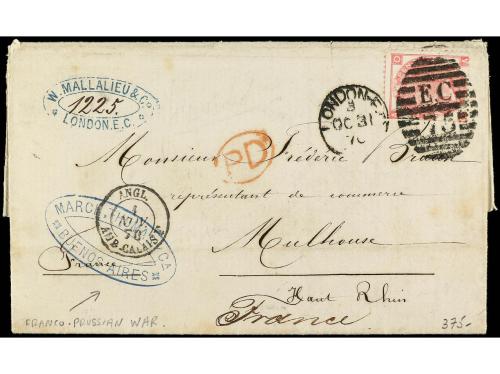 W. MALLALIEU & Co
1225.
LONDON. E.C.
LONDON-E.C
3
OC 31
70
E.C
75
PD
Monsieur Fréderic
représentant de commerce
ANGL.
1
NOV.
70
AMB. CALAIS
MARC CA
BUENOS AIRES
Mulhouse
France
Haut Rhin
France
FRANCO-PRUSSIAN WAR.
375-